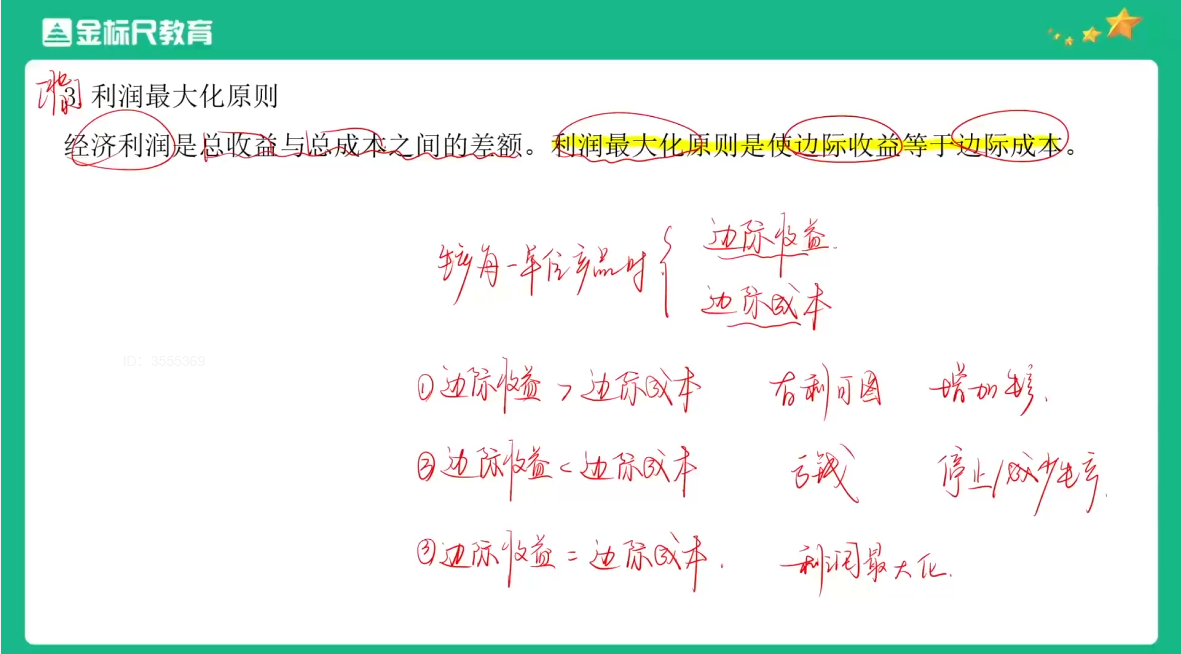 金标尺教育
3. 利润最大化原则
经济利润是总收益与总成本之间的差额。利润最大化原则是使边际收益等于边际成本。
生产每一单位产品时 { 边际收益.
边际成本
ID: 3555369
①边际收益 > 边际成本 有利可图 增加生产.
②边际收益 < 边际成本 亏钱 停止/减少生产.
③边际收益 = 边际成本. 利润最大化.